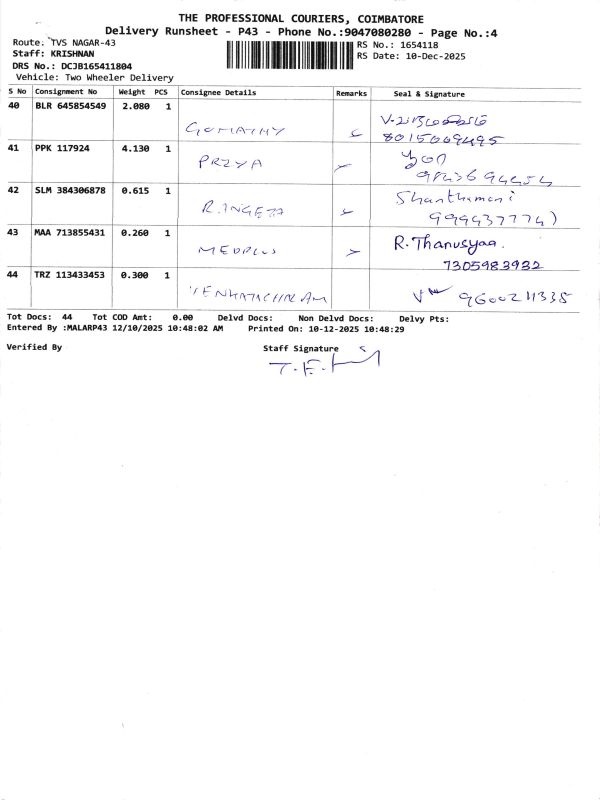 THE PROFESSIONAL COURIERS, COIMBATORE
Delivery Runsheet - P43 - Phone No.:9047080280 - Page No.:4
Route. TVS NAGAR-43
RS No.: 1654118
Staff: KRISHNAN
RS Date: 10-Dec-2025
DRS No.: DCJB165411804
Vehicle: Two Wheeler Delivery
S No Consignment No Weight PCS Consignee Details Remarks Seal & Signature
40 BLR 645854549 2.080 1
GOMATHY
8015009495
41 PPK 117924 4.130 1
PRIYA
42 SLM 384306878 0.615 1
Shanthamani
43 MAA 713855431 0.260 1
MEDPLUS
R. Thanusyaa.
7305983932
44 TRZ 113433453 0.300 1
VENKATACHALAM
9600211335
Tot Docs: 44 Tot COD Amt: 0.00 Delvd Docs: Non Delvd Docs: Delvy Pts:
Entered By :MALARP43 12/10/2025 10:48:02 AM Printed On: 10-12-2025 10:48:29
Verified By Staff Signature